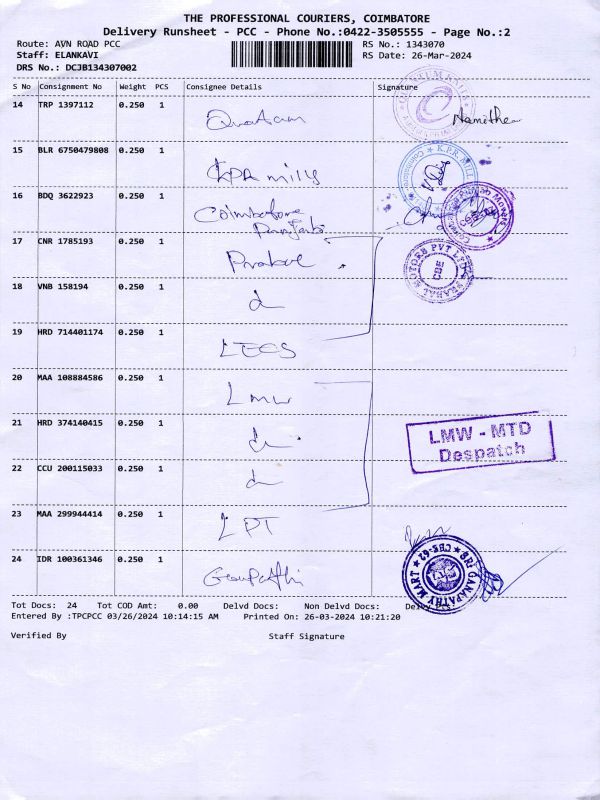 THE PROFESSIONAL COURIERS, COIMBATORE
Delivery Runsheet - PCC - Phone No.:0422-3505555 - Page No.:2
Route: AVN ROAD PCC RS No.: 1343070
Staff: ELANKAVI RS Date: 26-Mar-2024
DRS No.: DCJB134307002
S No Consignment No Weight PCS Consignee Details Signature
14 TRP 1397112 0.250 1 Namitha
15 BLR 6750479808 0.250 1 KPR mills K.P.R. MILL
16 BDQ 3622923 0.250 1 Coimbatore Punjab
17 CNR 1785193 0.250 1 MOTORS PVT LTD CBE
18 VNB 158194 0.250 1
19 HRD 714401174 0.250 1 LECS
20 MAA 108884586 0.250 1 LMW
21 HRD 374140415 0.250 1 LMW - MTD
Despatch
22 CCU 200115033 0.250 1
23 MAA 299944414 0.250 1 LPT
24 IDR 100361346 0.250 1 Ganpathi SRI GANAPATHY MART CBE-62
Tot Docs: 24 Tot COD Amt: 0.00 Delvd Docs: Non Delvd Docs:
Entered By :TPCPCC 03/26/2024 10:14:15 AM Printed On: 26-03-2024 10:21:20
Verified By Staff Signature